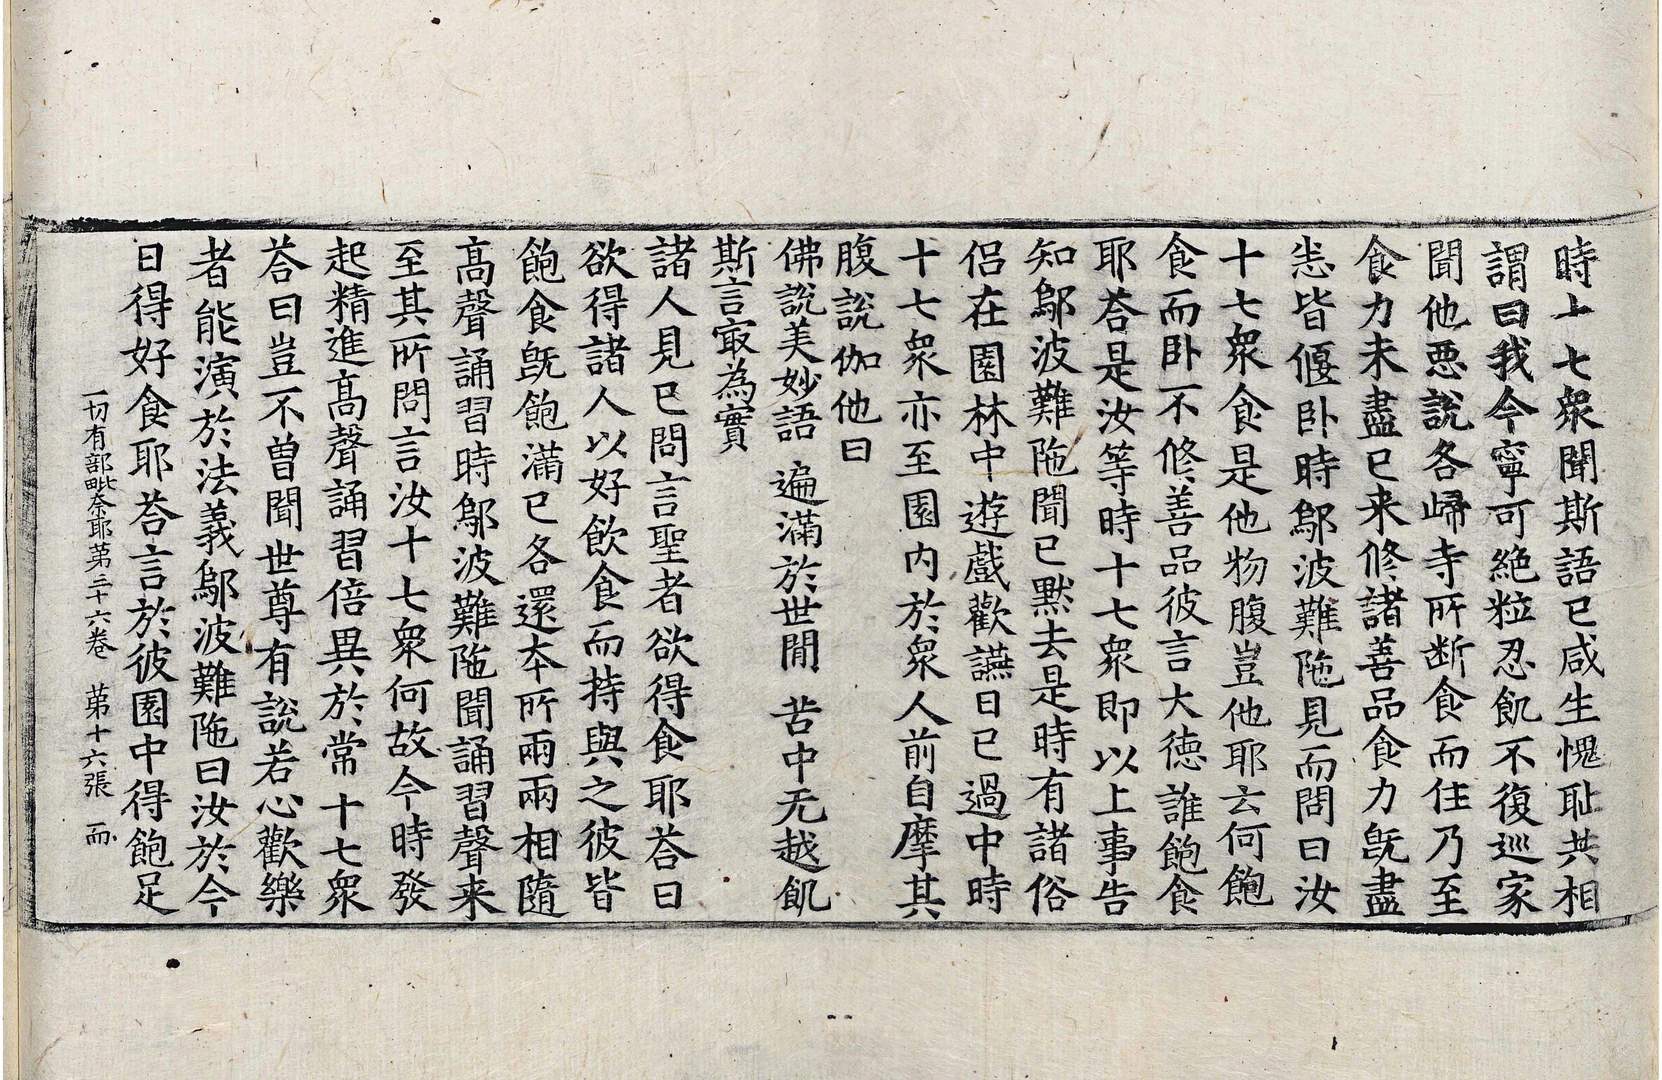 時十七衆聞斯語已咸生愧耻共相
謂曰我今寧可絶粒忍飢不復巡家
聞他悪說各歸寺所断食而住乃至
食力未盡已来修諸善品食力旣盡
恙皆偃卧時鄔波難陁見而問曰汝
十七衆食是他物腹豈他耶云何飽
食而卧不修善品彼言大徳誰飽食
耶荅是汝等時十七衆即以上事告
知鄔波難陁聞已黙去是時有諸俗
侣在園林中遊戲歡讌日已過中時
十七衆亦至園内於衆人前自摩其
腹說伽他曰
佛說美妙語 遍滿於世間 苦中无越飢
斯言㝡為實
諸人見已問言聖者欲得食耶荅曰
欲得諸人以好飲食而持與之彼皆
飽食旣飽滿已各還夲所兩兩相隨
髙聲誦習時鄔波難陁聞誦習聲来
至其所問言汝十七衆何故今時發
起精進髙聲誦習倍異於常十七衆
荅曰豈不曾聞世尊有說若心歡樂
者能演於法義鄔波難陁曰汝於今
日得好食耶荅言於彼園中得飽足
一切有部毗奈耶第三十六卷 第十六張 而